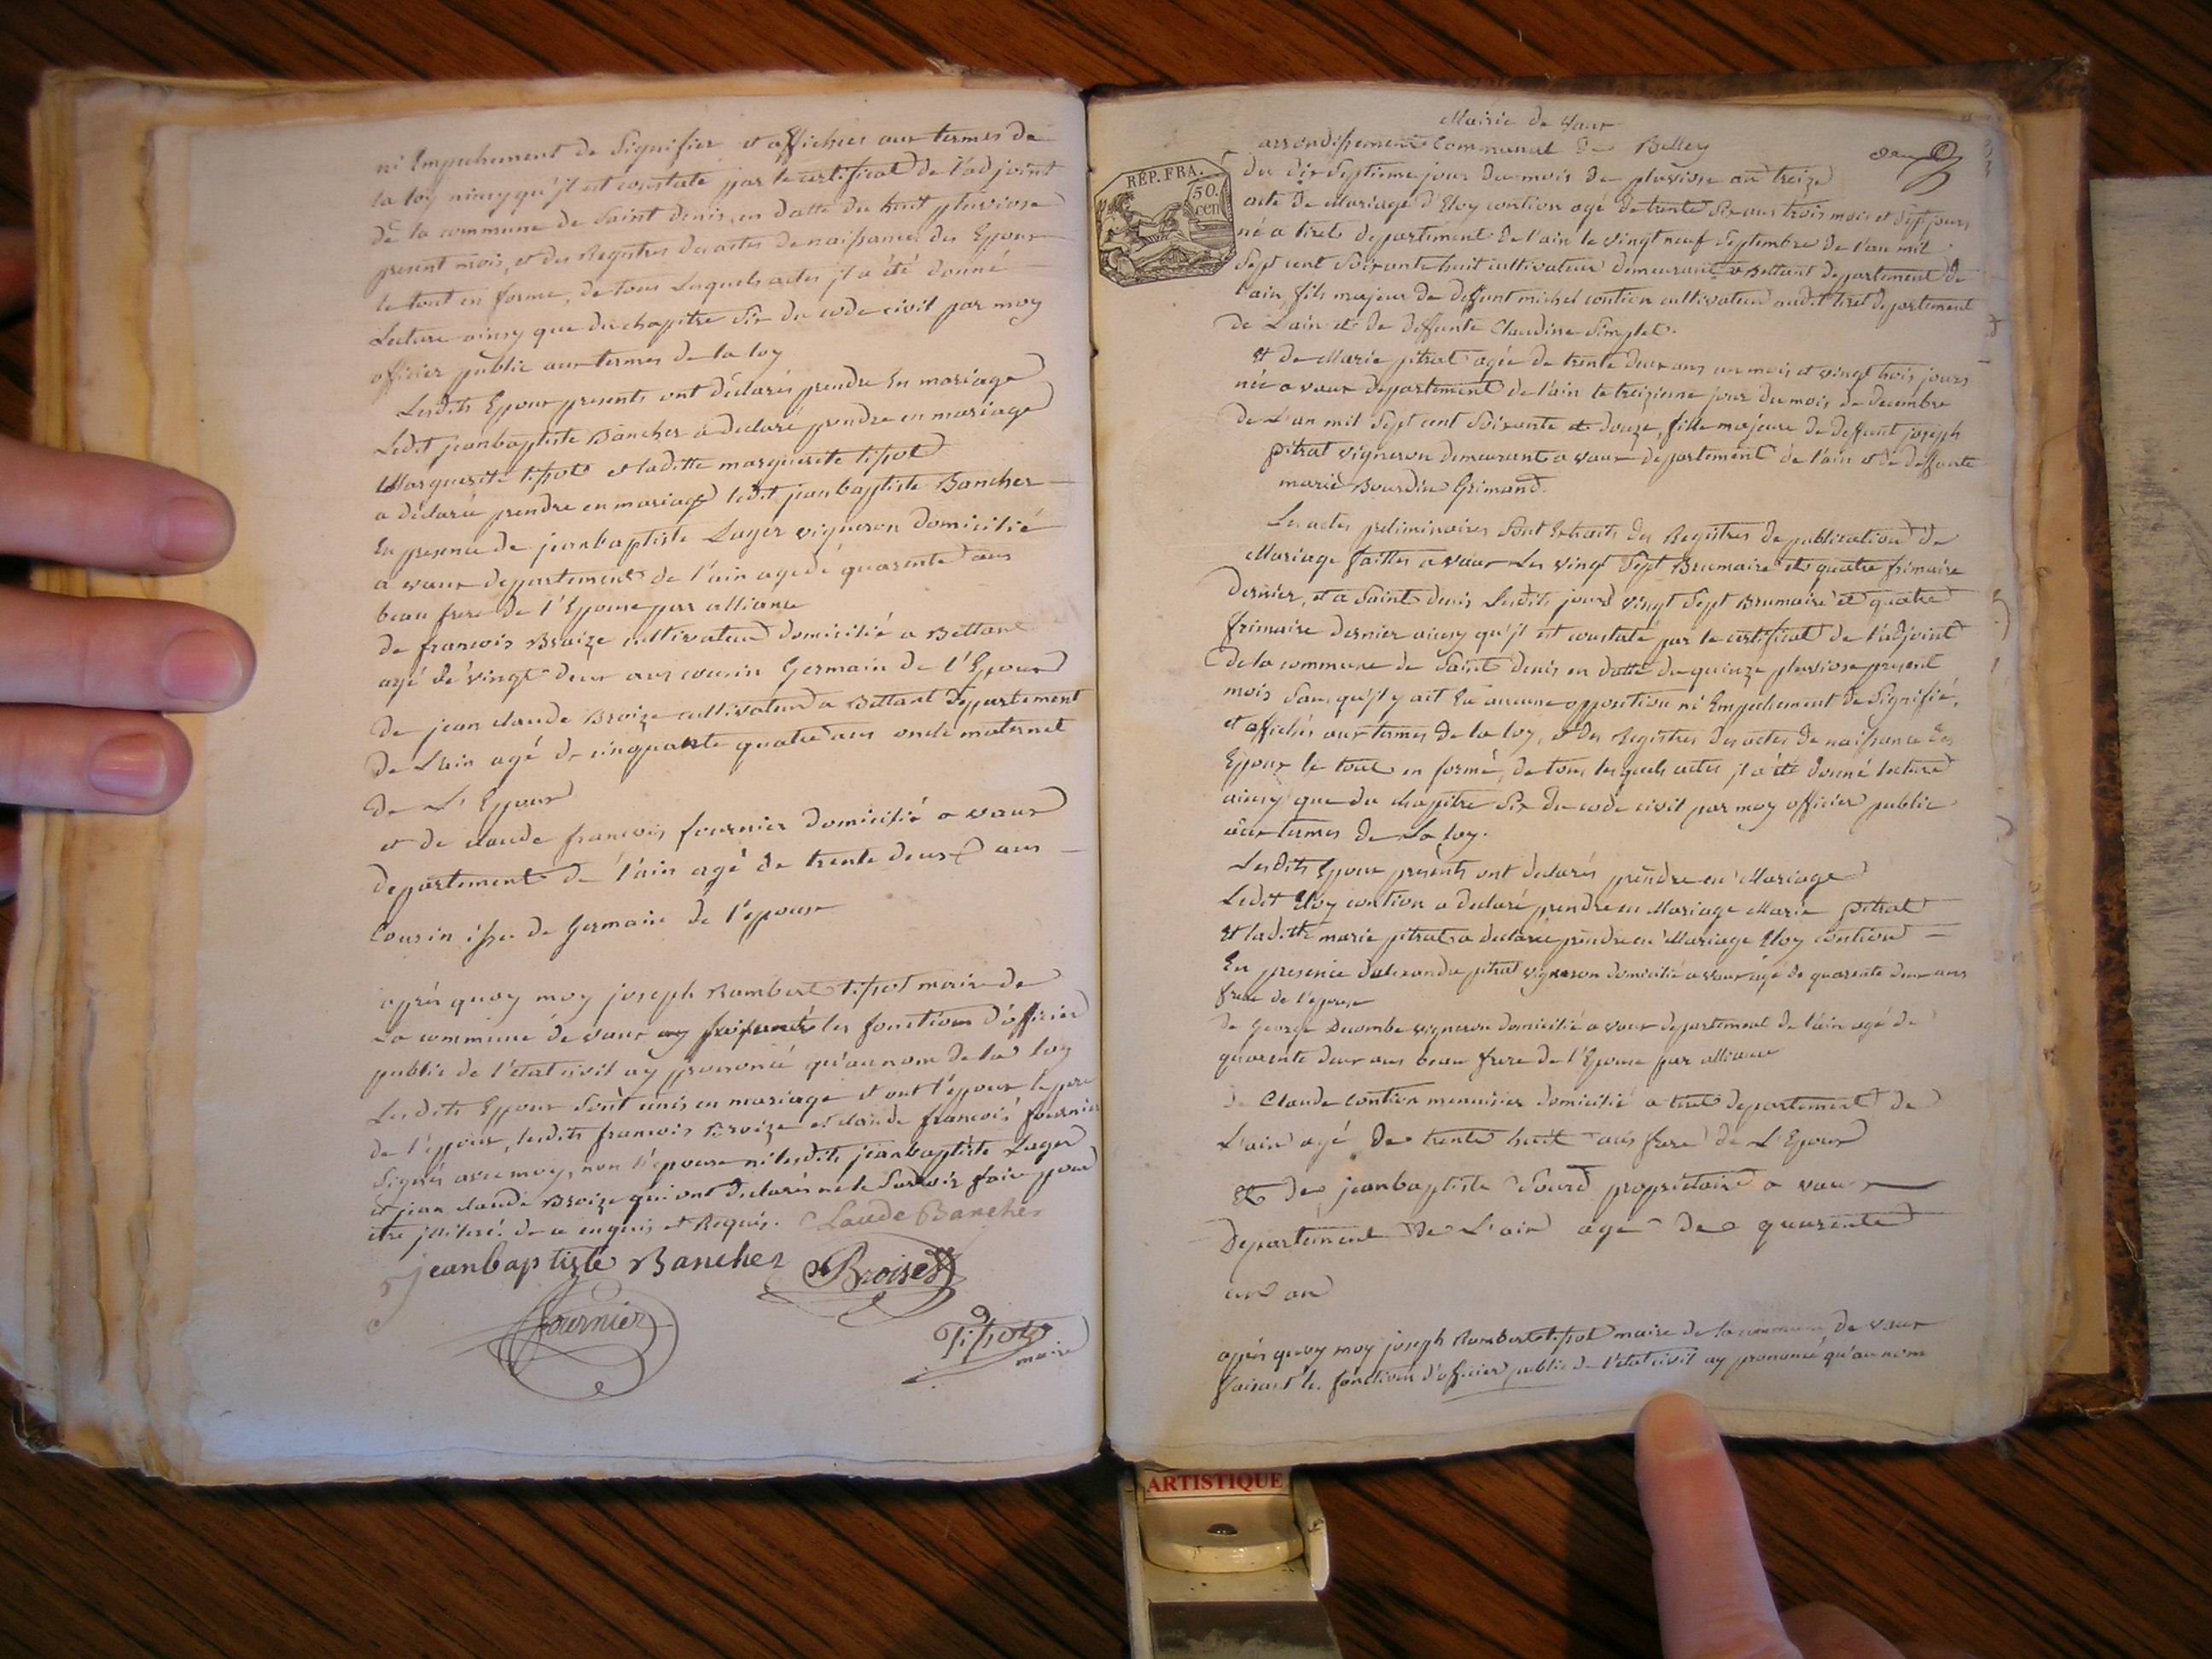 ni Empechement de Signifier et affichees aux termes de
la loy ainsy qu'jl est constaté par le certificat de l'adjoint
de la commune de Saint denis en datte du huit pluviose
present mois, et des Registres des actes de naissance des Epoux
le tout en forme, de tous Lesquels actes jl a été donné
Lecture ainsy que du chapitre Six du code civil par moy
officier public aux termes de la loy
Lesdits Epoux presents ont déclarés prendre En mariage
Ledit jeanbaptiste Bancher a declaré prendre en mariage
Marguerite tissot et laditte marguerite tissot
a déclaré prendre en mariage ledit jeanbaptiste Bancher
En presence de jeanbaptiste Lager vigneron domicilié
a vaux departement de l'ain agé de quarente ans
beau frere de l'Epouse par alliance
de francois Broize cultivateur domicilié a Bettant
agé de vingt deux ans cousin Germain de l'Epoux
de jean claude Broize cultivateur a Bettant departement
de L'ain agé de cinquante quatre ans oncle maternel
de L'Epoux
et de claude francois fournier domicilié a vaux
departement de l'ain agé de trente deux ans
Cousin issu de Germain de l'epouse
après quoy moy joseph Rambert tissot maire de
La commune de vaux faisant les fonctions d'officier
public de l'état civil ay prononcé qu'au nom de la loy
Lesdits Epoux Sont unis en mariage et ont l'epoux le pere
de l'epoux, lesdits francois Broize et claude francois fournier
Signés avec moy, non l'epouse ni lesdits jeanbaptiste Lager
et jean claude Broize qui ont declarés ne le Savoir faire pour
etre jlliteré de ce enquis et Requis. Claude Bancher
jeanbaptiste Bancher Broise
fournier
Tissot
maire
Mairie de Vaux
arrondissement Communal de Belley
REP. FRA.
50. cen
du dix Septieme jour du mois de pluviose an treize
acte de Mariage d'Eloy contion agé de trente Six ans trois mois et Sept jours
né a tiret departement de l'ain le vingt neuf Septembre de l'an mil
Sept cent Soixante huit cultivateur demeurant a Bettant departement de
l'ain, fils majeur de deffunt michel contion cultivateur audit tiret departement
de L'ain et de deffunte Claudine Simplet.
Et de Marie pitrat agée de trente deux ans un mois et vingt trois jours
née a vaux departement de l'ain le treizieme jour du mois de decembre
de L'an mil Sept cent Soixante et douze, fille majeure de deffunt joseph
pitrat vigneron demeurant a vaux departement de l'ain et de deffunte
marie Bourdin Grimand.
Les actes preliminaires Sont Extraits des Registres de publication de
Mariage faittes a vaux Les vingt Sept Brumaire et quatre frimaire
dernier, et a Saint denis Lesdits jours vingt Sept Brumaire et quatre
frimaire dernier ainsy qu'jl est constaté par le certificat de l'adjoint
de la commune de Saint denis en datte du quinze pluviose present
mois Sans qu'jl y ait Eu aucune opposition ni Empechement de Signifié,
et affichés aux termes de la loy, et des Registres des actes de naissance des
Epoux le tout en forme, de tous lesquels actes jl a été donné lecture
ainsy que du chapitre Six du code civil par moy officier public
aux termes de La loy.
Lesdits Epoux presents ont declarés prendre en Mariage
Ledit Eloy contion a declaré prendre en Mariage Marie pitrat
Et laditte marie pitrat a declarée prendre en Mariage Eloy contion
En presence d'alexandre pitrat vigneron domicilié a vaux agé de quarente deux ans
frere de l'epouse
de George Ducombe vigneron domicilié a vaux departement de l'ain agé de
quarente deux ans beau frere de l'Epouse par alliance
de Claude Contion menuisier domicilié a tiret departement de
L'ain agé de trente huit ans frere de L'Epoux
Et de jeanbaptiste Sourd propriétaire a vaux
departement de L'ain agé de quarente
un an
après quoy moy joseph Rambert tissot maire de la commune de vaux
faisant les fonctions d'officier public de l'état civil ay prononcé qu'au nom
ARTISTIQUE